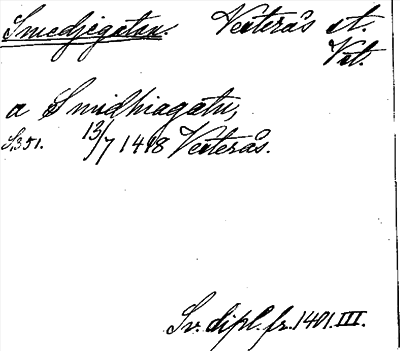 Smedjegatan. Västerås st.
Vst.
a Smidhiagatu,
S. 351. 13/7 1418 Västerås.
Sv. dipl. fr. 1401. III.